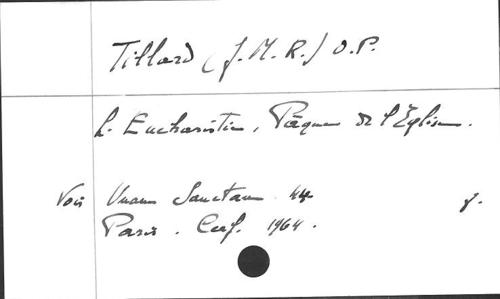 Tillard (J. M. R.) O.P.
L'Eucharistie, Pâque de l'Église.
Voir Unam Sanctam. 44 f.
Paris. Cerf. 1964.